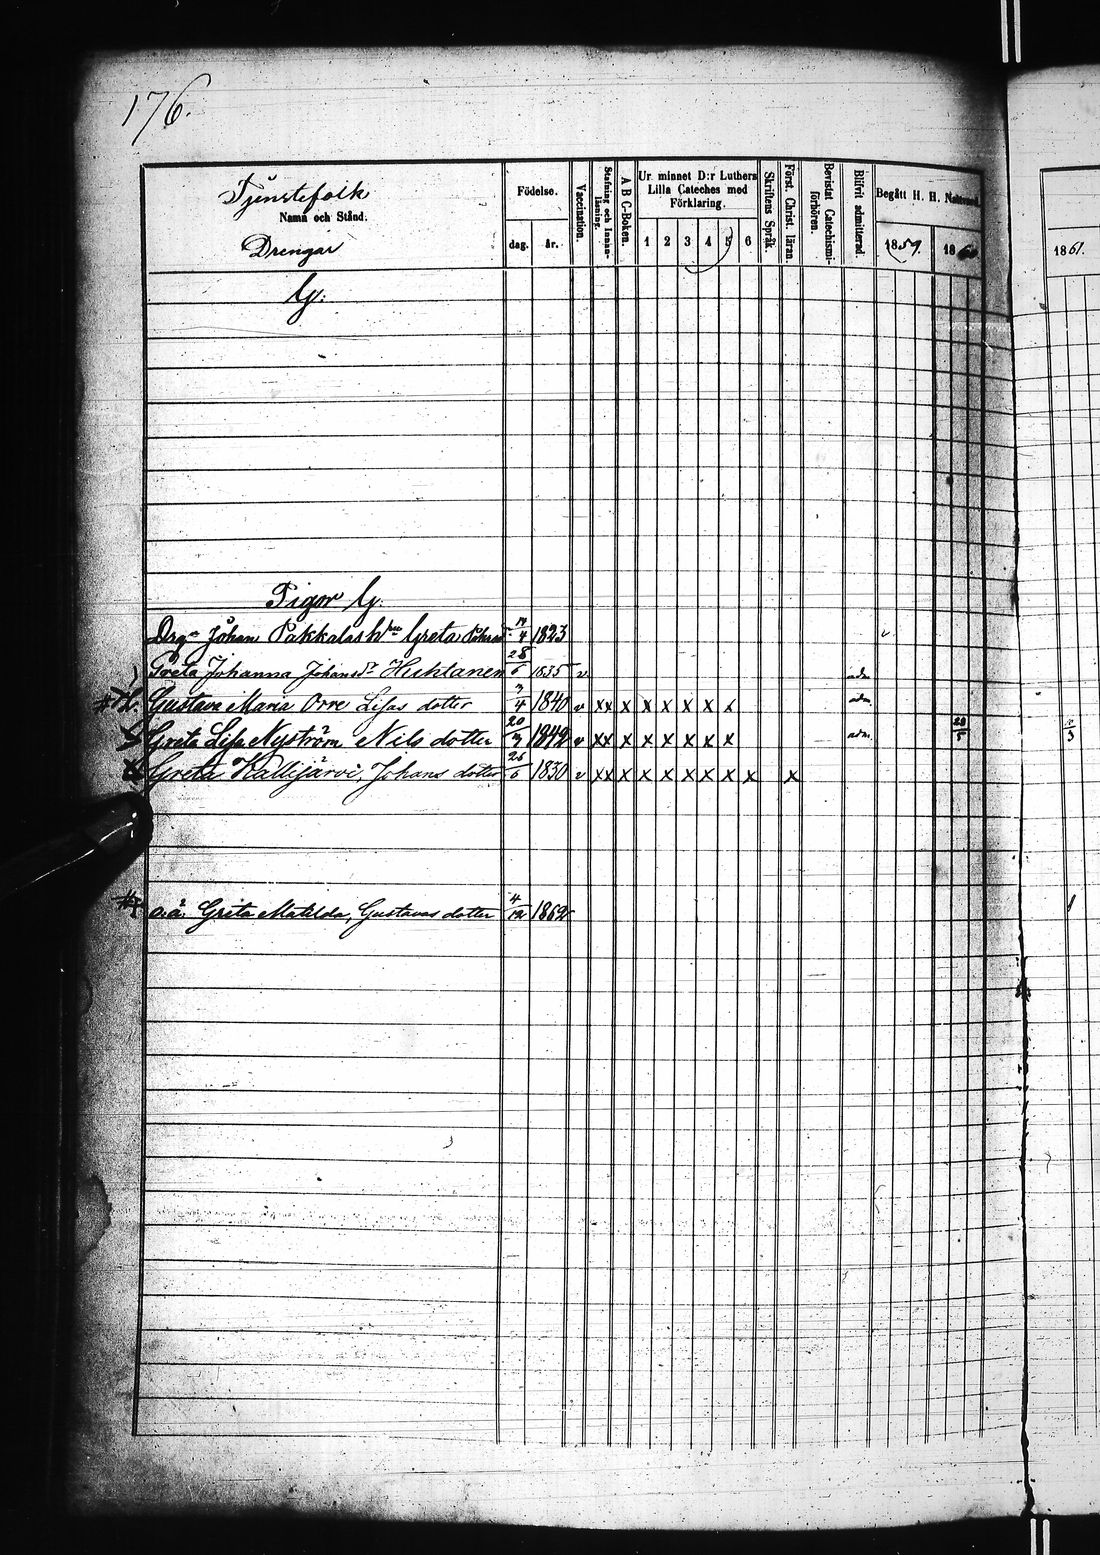 176.
Tjenstefolk
Namn och Stånd.
Drengar
Födelse.
dag. år.
Vaccination.
Stafning och Innanläsning.
A B C-Boken.
Ur minnet D:r Luthers Lilla Cateches med Förklaring.
1 2 3 4 5 6
Skriftens Språk.
Först. Christ. läran.
Bevistat Catechismiförhören.
Blifvit admitterad.
Begått H. H. Nattvard.
1859. 1860
1861.
G.
Pigor G.
Johan Greta 4 1823 v
Greta Johanna Johansdr 28/6 1835 v adm
Gustava Maria Orre Lisas dotter 4 1840 v xx x x x x x x adm.
Greta Lisa Nyström Nils dotter 20 1842 v xx x x x x x x adm.
Greta Kallijärvi, Johans dotter 26/6 1830 v xx x x x x x x x x
o.ä. Greta Matilda, Gustavas dotter 4/12 1862